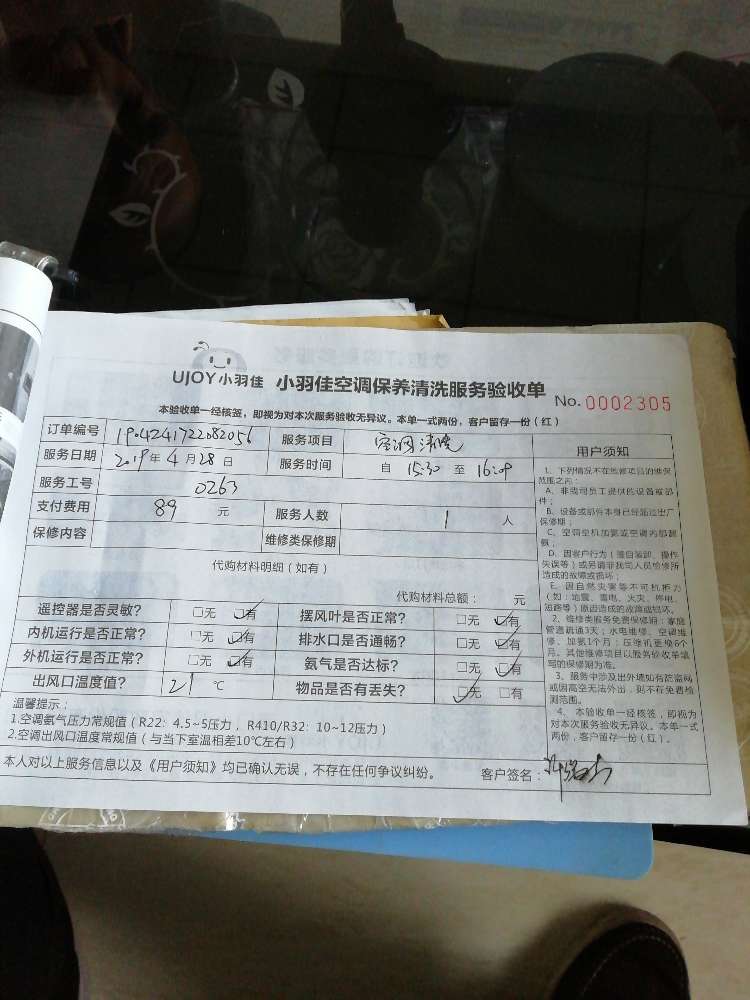 UJOY小羽佳 小羽佳空调保养清洗服务验收单 No. 0002305
本验收单一经核签，即视为对本次服务验收无异议。本单一式两份，客户留存一份（红）
订单编号 1904241722082056 服务项目 空调清洗
服务日期 2019年4月28日 服务时间 自 15:30 至 16:09
服务工号 0263
支付费用 89 元 服务人数 1 人
保修内容 维修类保修期
代购材料明细（如有）
代购材料总额： 元
遥控器是否灵敏？ □无 ☑有 摆风叶是否正常？ □无 ☑有
内机运行是否正常？ □无 ☑有 排水口是否通畅？ □无 ☑有
外机运行是否正常？ □无 ☑有 氨气是否达标？ □无 ☑有
出风口温度值？ 21 ℃ 物品是否有丢失？ ☑无 □有
温馨提示：
1.空调氨气压力常规值（R22：4.5~5压力，R410/R32：10~12压力）
2.空调出风口温度常规值（与当下室温相差10℃左右）
本人对以上服务信息以及《用户须知》均已确认无误，不存在任何争议纠纷。 客户签名：
用户须知
1、下列情况不在维修项目的维保
范围之内：
A、非我司员工提供的设备或部
件；
B、设备或部件本身已经超过出厂
保修期；
C、空调空机加氨或空调内部漏
氨；
D、因客户行为（擅自装卸、操作
失误等）或另请非我司人员检修所
造成的故障或损坏；
E、因自然灾害等不可抗拒力
（如：地震、雷电、火灾、停电、
短路等）原因造成的故障或损坏。
2、维修类服务免费保修期：家庭
管道疏通3天；水电维修、空调维
修、加氨1个月；压缩机更换6个
月。其他维修项目以服务验收单填
写的保修期为准。
3、服务中涉及出外墙如有防盗网
或因高空无法外出，则不存免费检
测范围。
4、本验收单一经核签，即视为
对本次服务验收无异议。本单一式
两份，客户留存一份（红）。